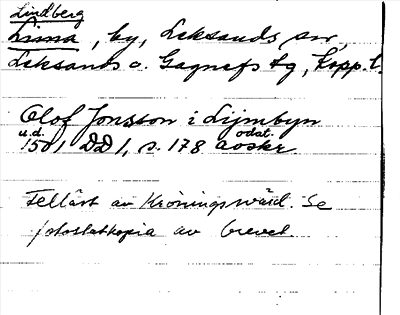 Lindberg
Lima, by, Leksands sn,
Leksands o. Gagnefs tg, Kopp. l.
Olof Jonsson i Lijmbyn
u.d. odat.
1501 DD 1, s. 178 avskr.
Felläst av Kröningssvärd. Se
fotostatkopia av brevet